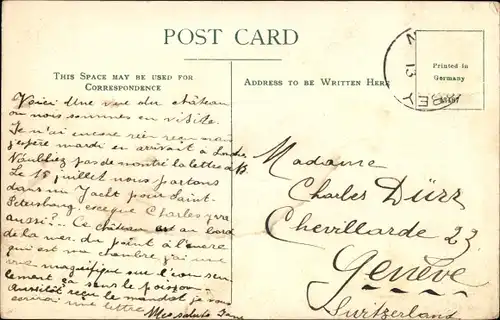 POST CARD
THIS SPACE MAY BE USED FOR
CORRESPONDENCE
ADDRESS TO BE WRITTEN HERE
Printed in
Germany
13
EY
Voici une vue du château
où nous sommes en visite.
Je n'ai encore rien reçu mais
j'espère mardi en arrivant à
N'oubliez pas de montrer la lettre à B.
Le 15 juillet nous partons
dans un Yacht pour Saint-
Petersburg, esceque Charles ira
aussi?.. Ce château est au bord
de la mer. du point à l'encre
qui est ma chambre, j'ai une
vue magnifique sur l'eau seu-
lement ça sans le poisson.
Aussitôt reçu le mandat je vous
écrirai une lettre
Mes saluts
Madame
Charles Dürr
Chevillarde 23
Genève
Switzerland